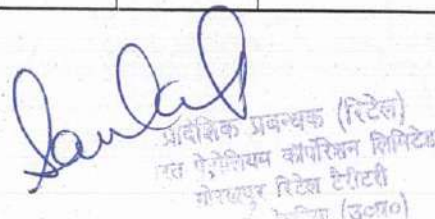 प्रादेशिक प्रबन्धक (रिटेल)
पेट्रोलियम कॉर्पोरेशन लिमिटेड
गोरखपुर रिटेल टैरीटरी
(उ०प्र०)